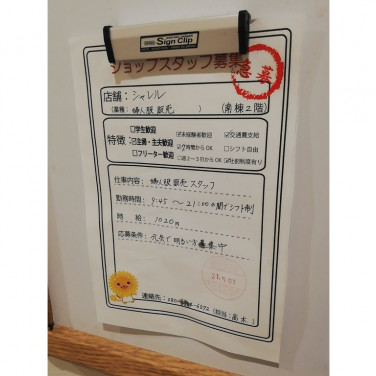 Sign Clip
ショップスタッフ募集
急募
店舗：シャレル
（業種：婦人服販売　）（南棟2階）
特徴：
□学生歓迎 ☑未経験者歓迎 ☑交通費支給
☑主婦・主夫歓迎 ☑7時間からOK □シフト自由
□フリーター歓迎 □週2～3日からOK ☑社割制度有り
仕事内容：婦人服販売スタッフ
勤務時間：9:45～21:00の間でシフト制
時　給：1020円
応募条件：元気で明るい方募集中
連絡先：
（担当：高木）